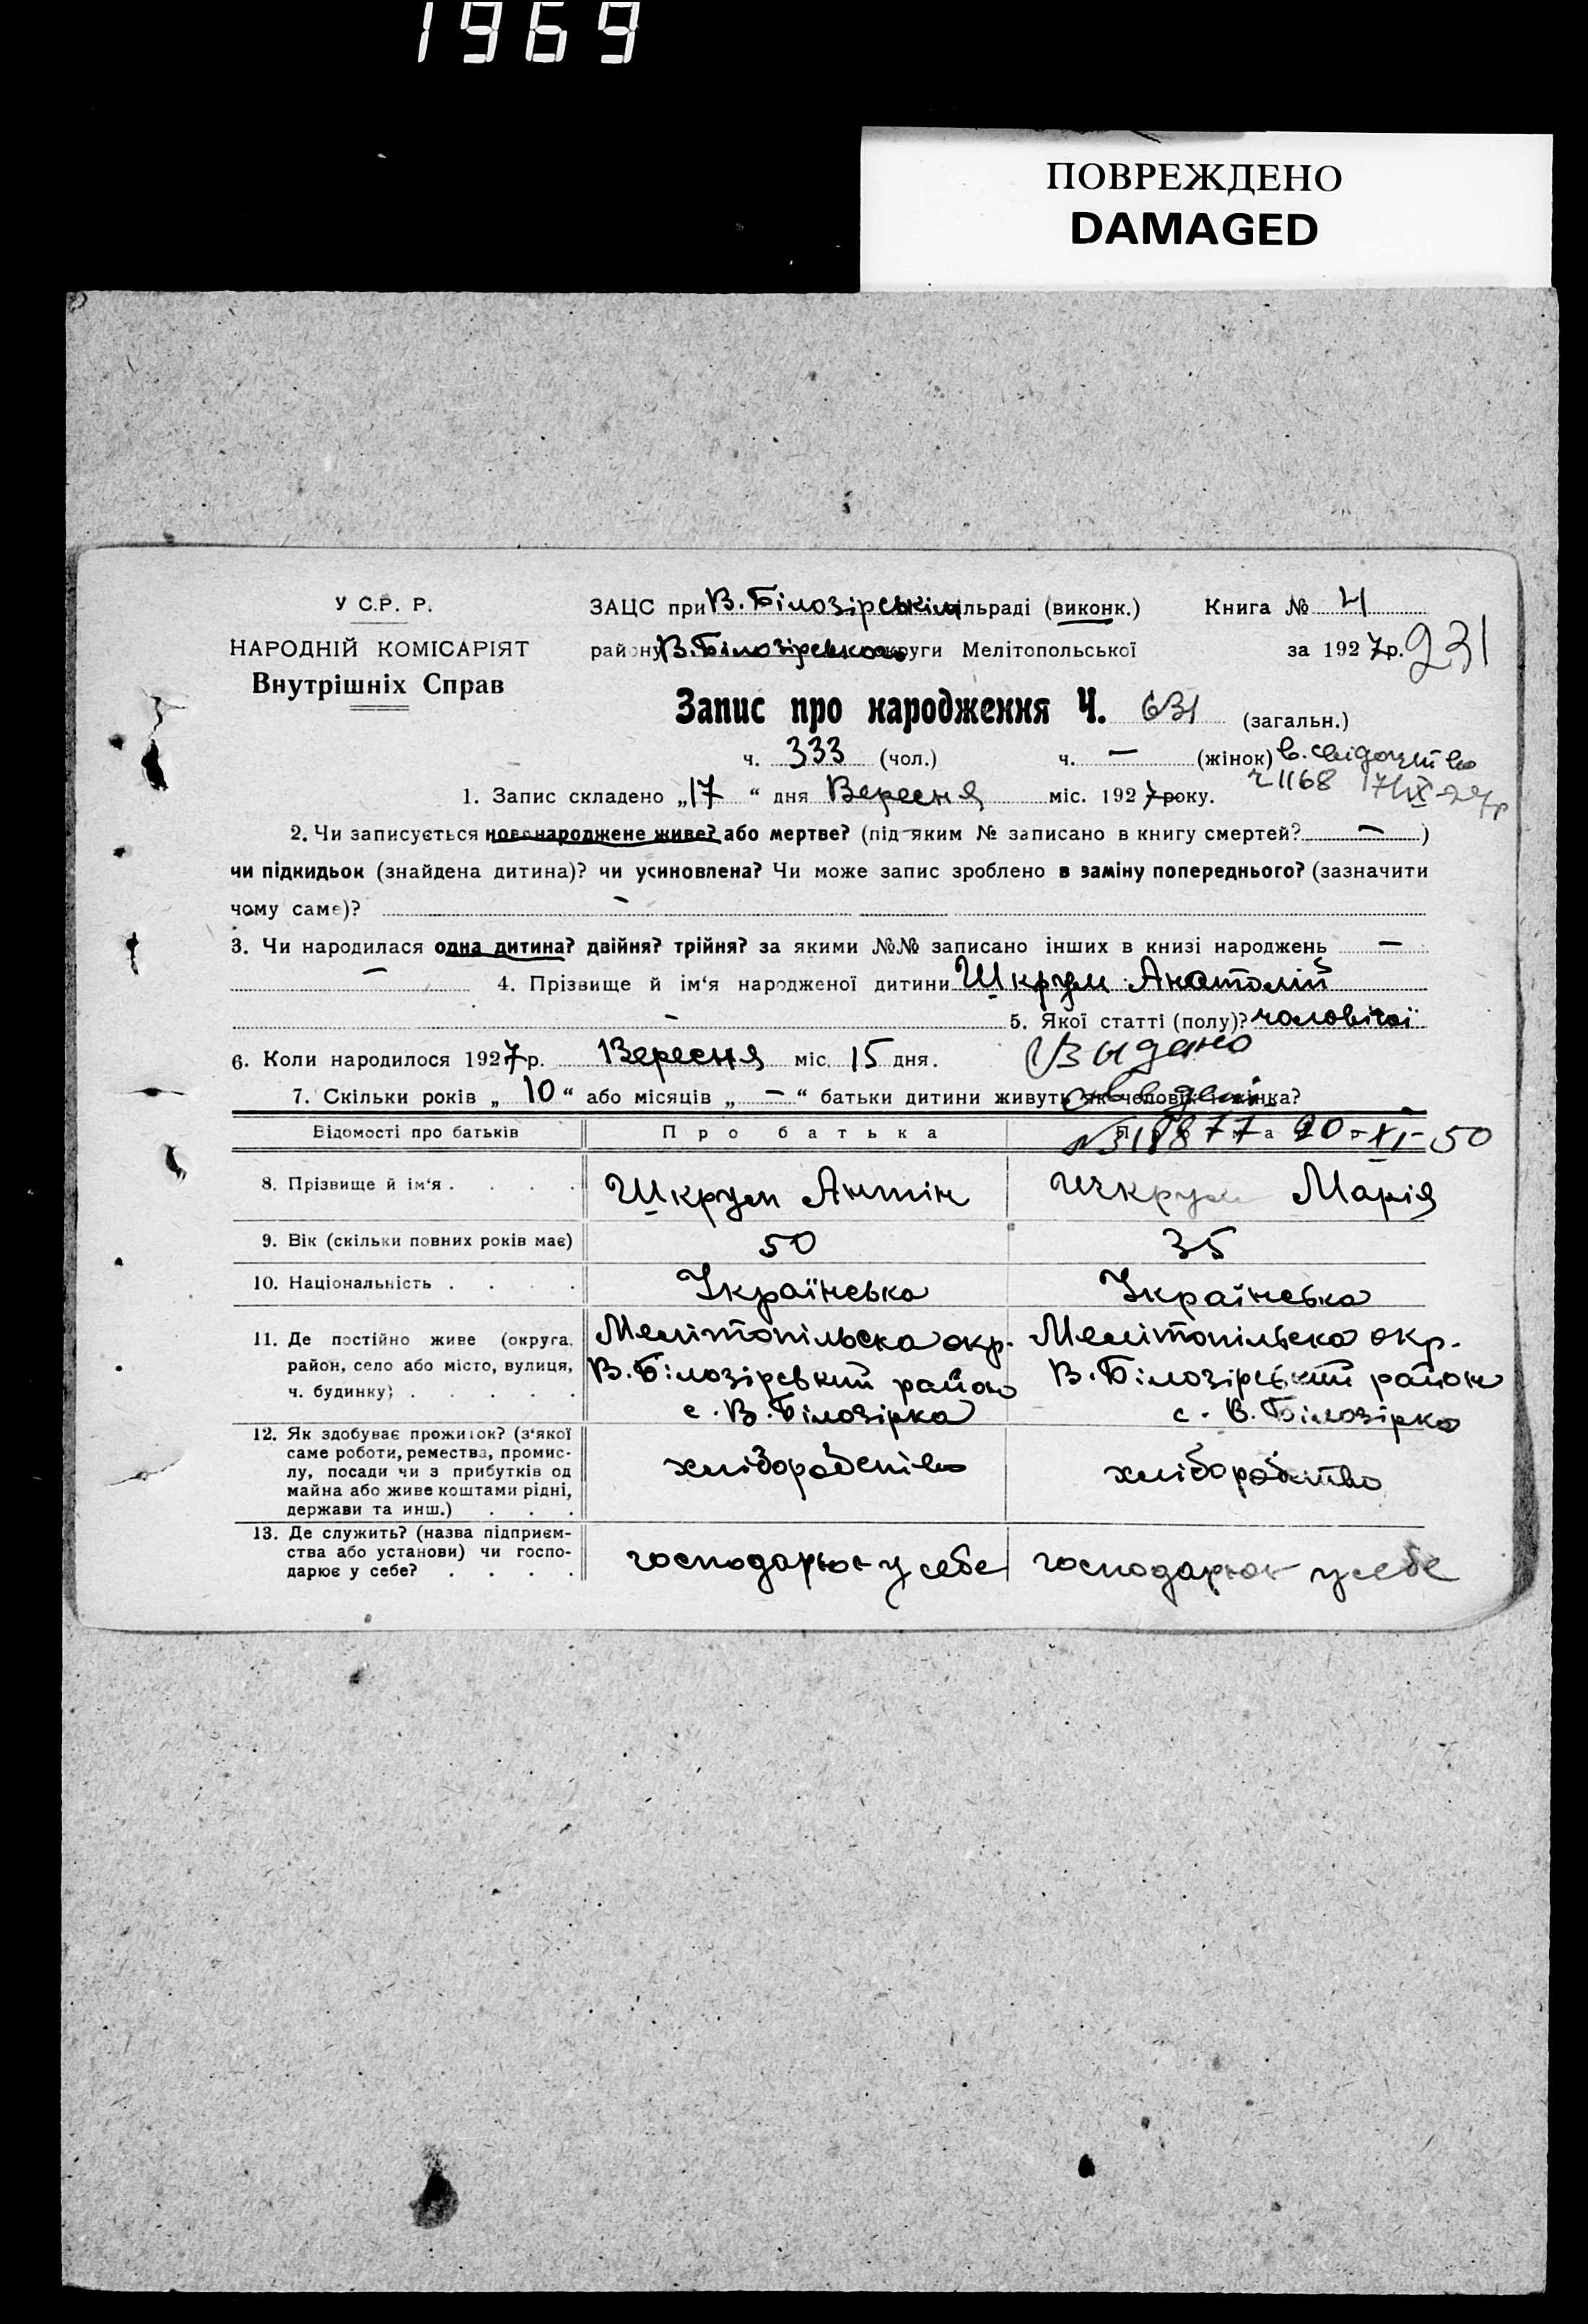 1969
ПОВРЕЖДЕНО
DAMAGED
У С.Р. Р.
НАРОДНІЙ КОМІСАРІЯТ
Внутрішніх Справ
ЗАЦС при В. Білозірськім сільраді (виконк.) Книга № 4
району В. Білозірського округи Мелітопольської за 1927р. 231
Запис про народження Ч. 631 (загальн.)
ч. 333 (чол.) ч. — (жінок) в. свідоцтво
ч 1168 17/IX-27р
1. Запис складено „17“ дня Вересня міс. 1927 року.
2. Чи записується новонароджене живе? або мертве? (під яким № записано в книгу смертей? — )
чи підкидьок (знайдена дитина)? чи усиновлена? Чи може запис зроблено в заміну попереднього? (зазначити
чому саме)? —
3. Чи народилася одна дитина? двійня? трійня? за якими №№ записано інших в книзі народжень —
— 4. Прізвище й ім‘я народженої дитини Шкрум Анатолій
— 5. Якої статті (полу)? чоловічої
6. Коли народилося 1927р. Вересня міс. 15 дня. Выдано
7. Скільки років „ 10 “ або місяців „ — “ батьки дитини живуть як чоловік і жінка?
Відомості про батьків Про батька 20-XI-50
8. Прізвище й ім‘я . . . . Шкрум Антін Шкрум Марія
9. Вік (скільки повних років має) 50 35
10. Національність . . . . Українська Українська
11. Де постійно живе (округа, Мелітопільска окр. Мелітопільска окр.
район, село або місто, вулиця, В. Білозірський район В. Білозірський район
ч. будинку) . . . . . с. В. Білозірка с. В. Білозірка
12. Як здобуває прожиток? (з‘якої
саме роботи, ремества, промис-
лу, посади чи з прибутків од хліборобство хліборобство
майна або живе коштами рідні,
держави та инш.) . . .
13. Де служить? (назва підприєм-
ства або установи) чи госпо- господарює у себе господарює у себе
дарює у себе? . . . .